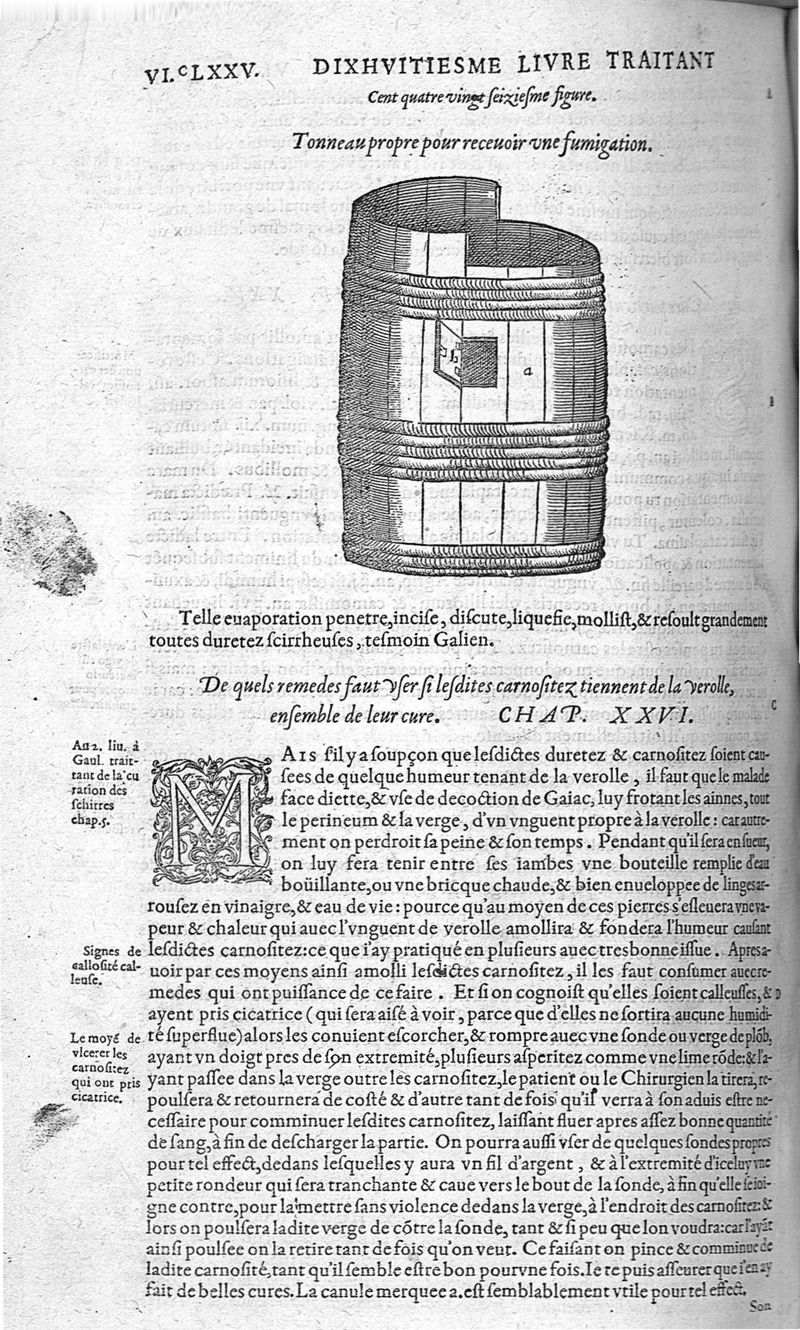 VI.ᶜLXXV. DIXHVITIESME LIVRE TRAITANT
Cent quatre vingt ſeizieſme figure.
Tonneau propre pour receuoir vne fumigation.
b
a
Telle euaporation penetre, inciſe, diſcute, liquefie, molliſt, & reſoult grandement
toutes duretez ſcirrheuſes, teſmoin Galien.
De quels remedes faut vſer ſi leſdites carnoſitez tiennent de la verolle,
enſemble de leur cure. CHAP. XXVI.
Au 2. liu. à
Gaul. trait-
tant de la cu
ration des
ſchirres
chap. 5.
MAIS s'il y a ſoupçon que leſdictes duretez & carnoſitez ſoient cau-
ſees de quelque humeur tenant de la verolle, il faut que le malade
face diette, & vſe de decoction de Gaiac, luy frotant les ainnes, tout
le perineum & la verge, d'vn vnguent propre à la verolle: car autre-
ment on perdroit ſa peine & ſon temps. Pendant qu'il ſera en ſueur,
on luy fera tenir entre ſes iambes vne bouteille remplie d'eau
boüillante, ou vne bricque chaude, & bien enueloppee de linges ar-
rouſez en vinaigre, & eau de vie: pource qu'au moyen de ces pierres s'eſleuera vne va-
peur & chaleur qui auec l'vnguent de verolle amollira & fondera l'humeur cauſant
leſdictes carnoſitez: ce que i'ay pratiqué en pluſieurs auec tresbonne iſſue. Apres a-
uoir par ces moyens ainſi amolli leſdictes carnoſitez, il les faut conſumer auec re-
medes qui ont puiſſance de ce faire. Et ſi on cognoiſt qu'elles ſoient calleuſes, &
ayent pris cicatrice (qui ſera aiſé à voir, parce que d'elles ne ſortira aucune humidi-
té ſuperflue) alors les conuient eſcorcher, & rompre auec vne ſonde ou verge de plõb,
ayant vn doigt pres de ſon extremité, pluſieurs aſperitez comme vne lime rõde: & l'a-
yant paſſee dans la verge outre les carnoſitez, le patient ou le Chirurgien la tirera, re-
poulſera & retournera de coſté & d'autre tant de fois qu'il verra à ſon aduis eſtre ne-
ceſſaire pour comminuer leſdites carnoſitez, laiſſant fluer apres aſſez bonne quantité
de ſang, à fin de deſcharger la partie. On pourra auſſi vſer de quelques ſondes propres
pour tel effect, dedans leſquelles y aura vn fil d'argent, & à l'extremité d'iceluy vne
petite rondeur qui ſera tranchante & caue vers le bout de la ſonde, à fin qu'elle ſe ioi-
gne contre, pour la mettre ſans violence dedans la verge, à l'endroit des carnoſitez: &
lors on poulſera ladite verge de cõtre la ſonde, tant & ſi peu que lon voudra: car l'ayãt
ainſi poulſee on la retire tant de fois qu'on veut. Ce faiſant on pince & comminue de
ladite carnoſité, tant qu'il ſemble eſtre bon pour vne fois. Ie te puis aſſeurer que i'en ay
fait de belles cures. La canule merquee a. eſt ſemblablement vtile pour tel effect.
Signes de
calloſité cal-
leuſe.
Le moyẽ de
vlcerer les
carnoſitez
qui ont pris
cicatrice.
Son